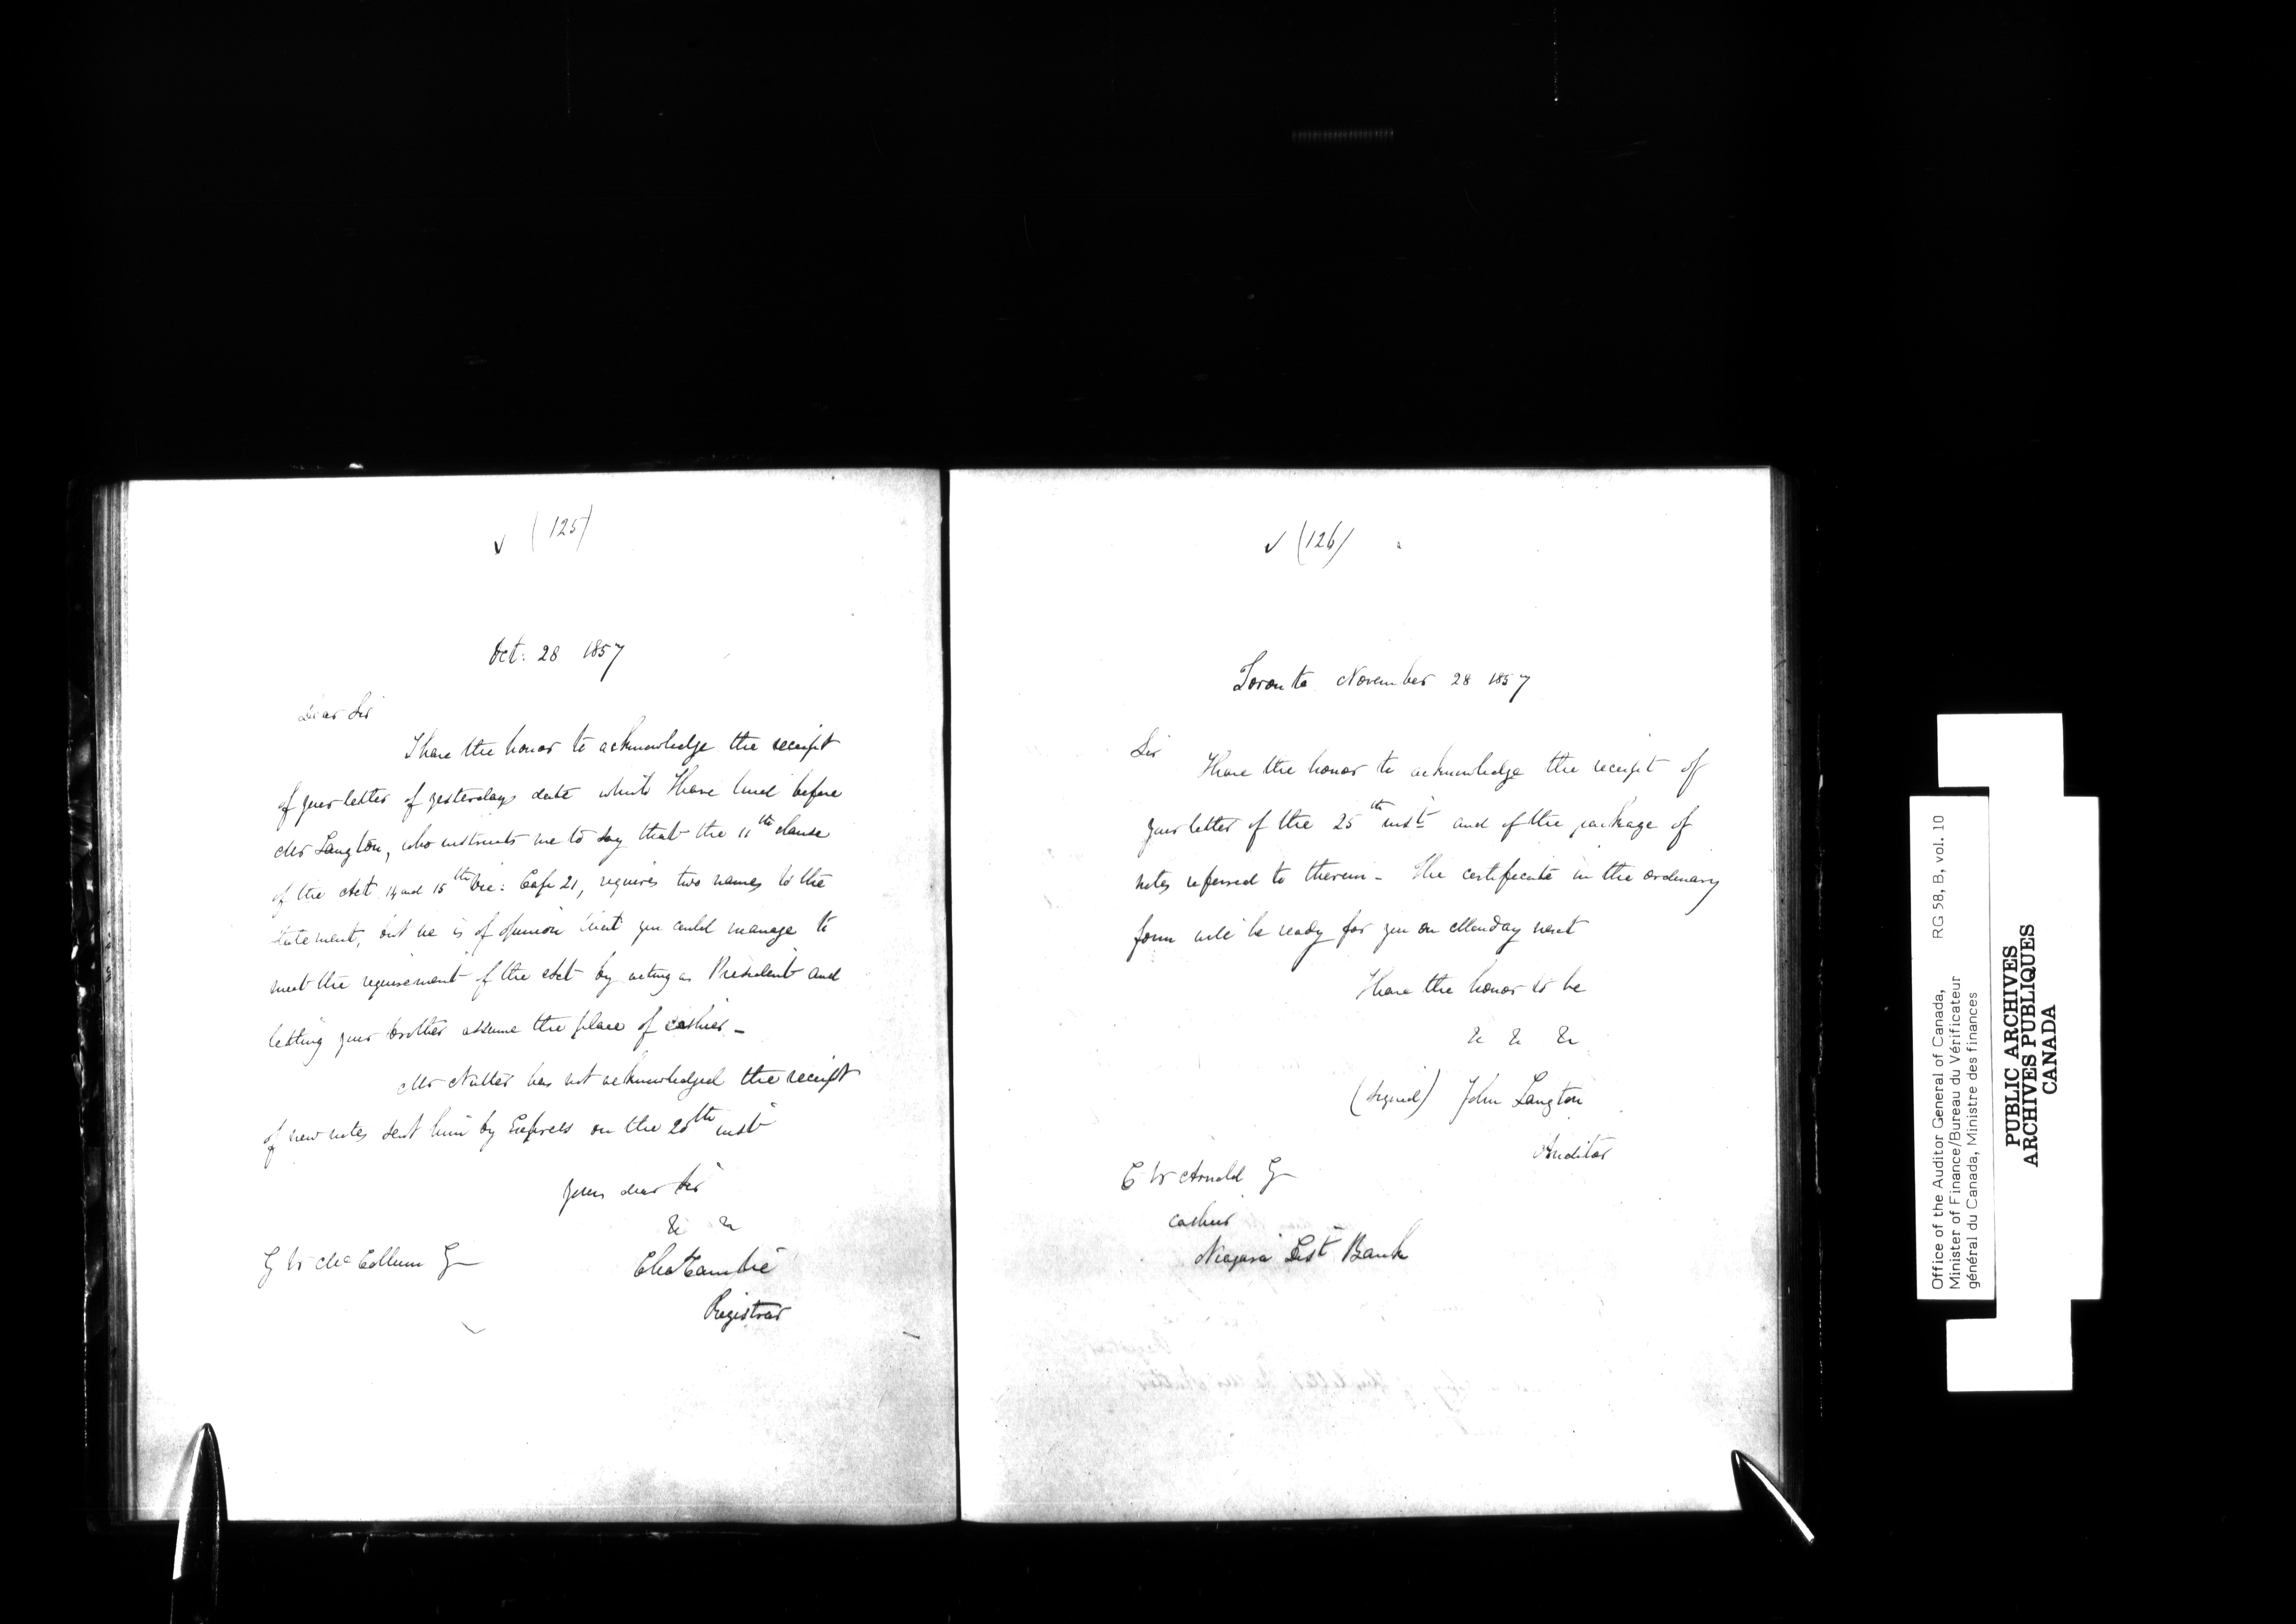 ✓ (125)
Oct. 28 1857
Dear Sir
I have the honor to acknowledge the receipt
of your letter of yesterdays date which I have laid before
Mr Langton, who instructs me to say that the 11th clause
of the Act 14 and 15th Vic: Cap 21, requires two names to the
statement, but he is of opinion that you could manage to
meet the requirement of the Act by acting as President and
letting your brother assume the place of cashier -
Mr Nutter has not acknowledged the receipt
of new notes sent him by Express on the 20th inst
Yours dear Sir
&c &c
Chas Cambie
Registrar
G W McCollum
✓ (126)
Toronto November 28 1857
Sir
I have the honor to acknowledge the receipt of
your letter of the 25th inst and of the package of
notes referred to therein - The certificate in the ordinary
form will be ready for you on Monday next
I have the honor to be
&c &c &c
(signed) John Langton
Auditor
C W Arnold
cashier
Niagara Dist Bank
Office of the Auditor General of Canada, RG 58, B, vol. 10
Minister of Finance/Bureau du Vérificateur
général du Canada, Ministre des finances
PUBLIC ARCHIVES
ARCHIVES PUBLIQUES
CANADA